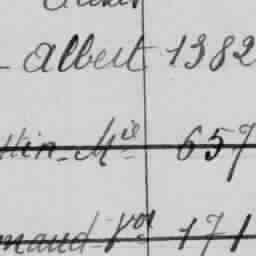 - Albert 1382
ttin - Mis 657
maud Vor 171